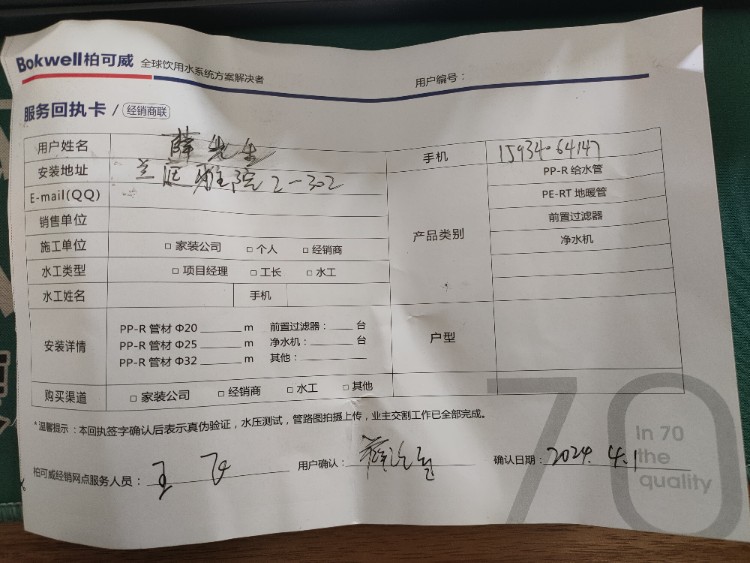 Bokwell柏可威 全球饮用水系统方案解决者
用户编号：
服务回执卡 / 经销商联
用户姓名 薛先生 手机 15934064147
安装地址 兰园雅院2-302
E-mail(QQ)
销售单位
产品类别
PP-R 给水管
PE-RT 地暖管
前置过滤器
净水机
施工单位 □ 家装公司 □ 个人 □ 经销商
水工类型 □ 项目经理 □ 工长 □ 水工
水工姓名 手机
安装详情
PP-R 管材 Φ20 ______ m 前置过滤器：____ 台
PP-R 管材 Φ25 ______ m 净水机：____ 台
PP-R 管材 Φ32 ______ m 其他：____
户型
购买渠道 □ 家装公司 □ 经销商 □ 水工 □ 其他
*温馨提示：本回执签字确认后表示真伪验证，水压测试，管路图拍摄上传，业主交割工作已全部完成。
柏可威经销网点服务人员：王飞 用户确认：薛 确认日期：2024.4.1
70
in 70
the
quality